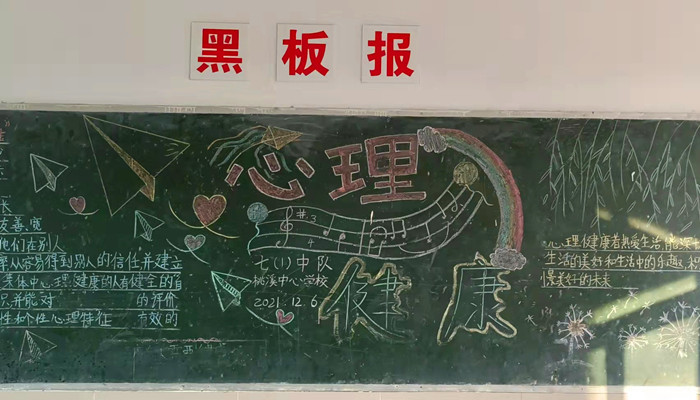 黑板报
心理
健康
七(1)中队
桃溪中心学校
2021.12.6
长
友善,宽
他们在别人
容易得到别人的信任,并建立
集体中心理健康的人有健全的自
识,并能对 的评价
性和个性心理特征 有效的
心理健康者热爱生活,能
生活的美好和生活中的乐趣,
憬美好的未来